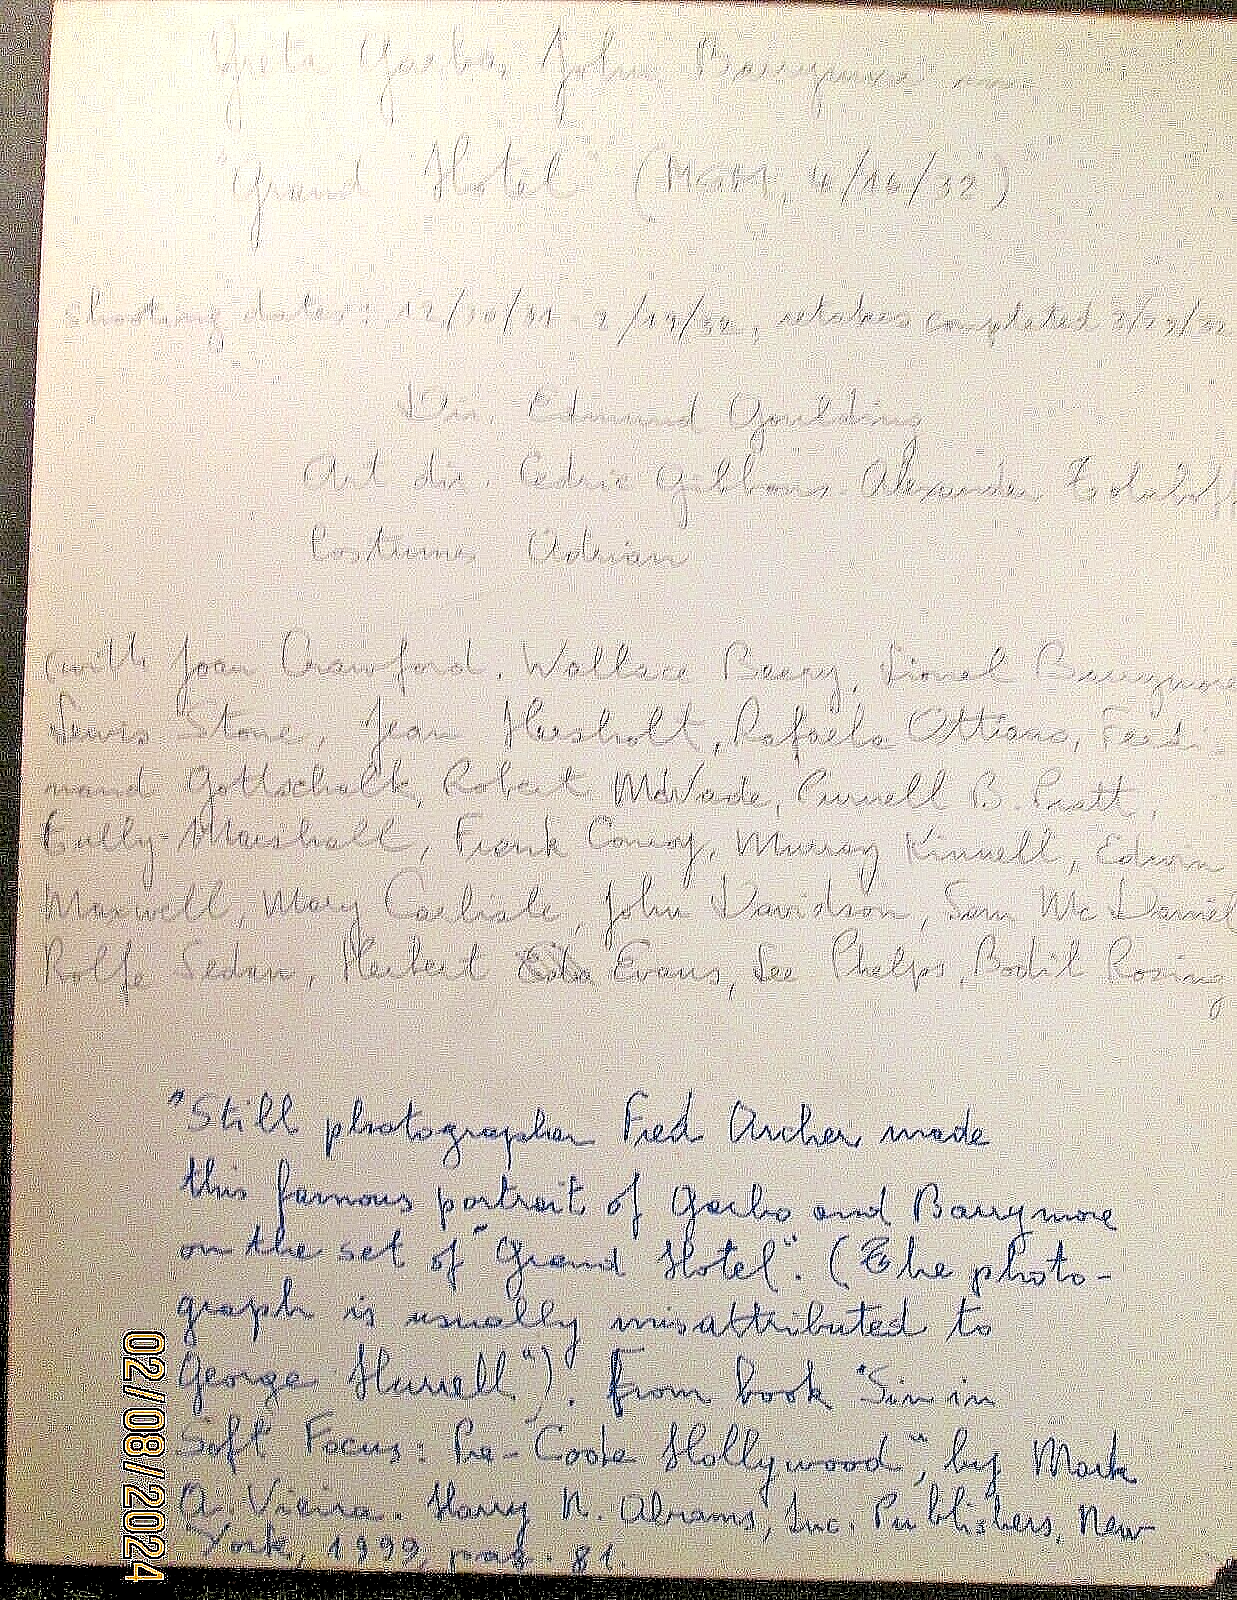 Greta Garbo, John Barrymore in
"Grand Hotel" (MGM, 4/16/32)
shooting dates: 12/30/31 - 2/19/32, retakes completed 3/29/32
Dir. Edmund Goulding
Art dir. Cedric Gibbons. Alexander Toluboff
Costumes Adrian
(with Joan Crawford, Wallace Beery, Lionel Barrymore
Lewis Stone, Jean Hersholt, Rafaela Ottiano, Ferdi-
nand Gottschalk, Robert McWade, Purnell B. Pratt,
Tully Marshall, Frank Conroy, Murray Kinnell, Edwin
Maxwell, Mary Carlisle, John Davidson, Sam McDaniel
Rolfe Sedan, Herbert Evans, Lee Phelps, Bodil Rosing
"Still photographer Fred Archer made
this famous portrait of Garbo and Barrymore
on the set of "Grand Hotel". (The photo-
graph is usually misattributed to
George Hurrell"). From book "Sin in
Soft Focus: Pre-Code Hollywood", by Mark
A. Vieira. Harry N. Abrams, Inc Publishers, New
York, 1999, pag. 81.
02/08/2024